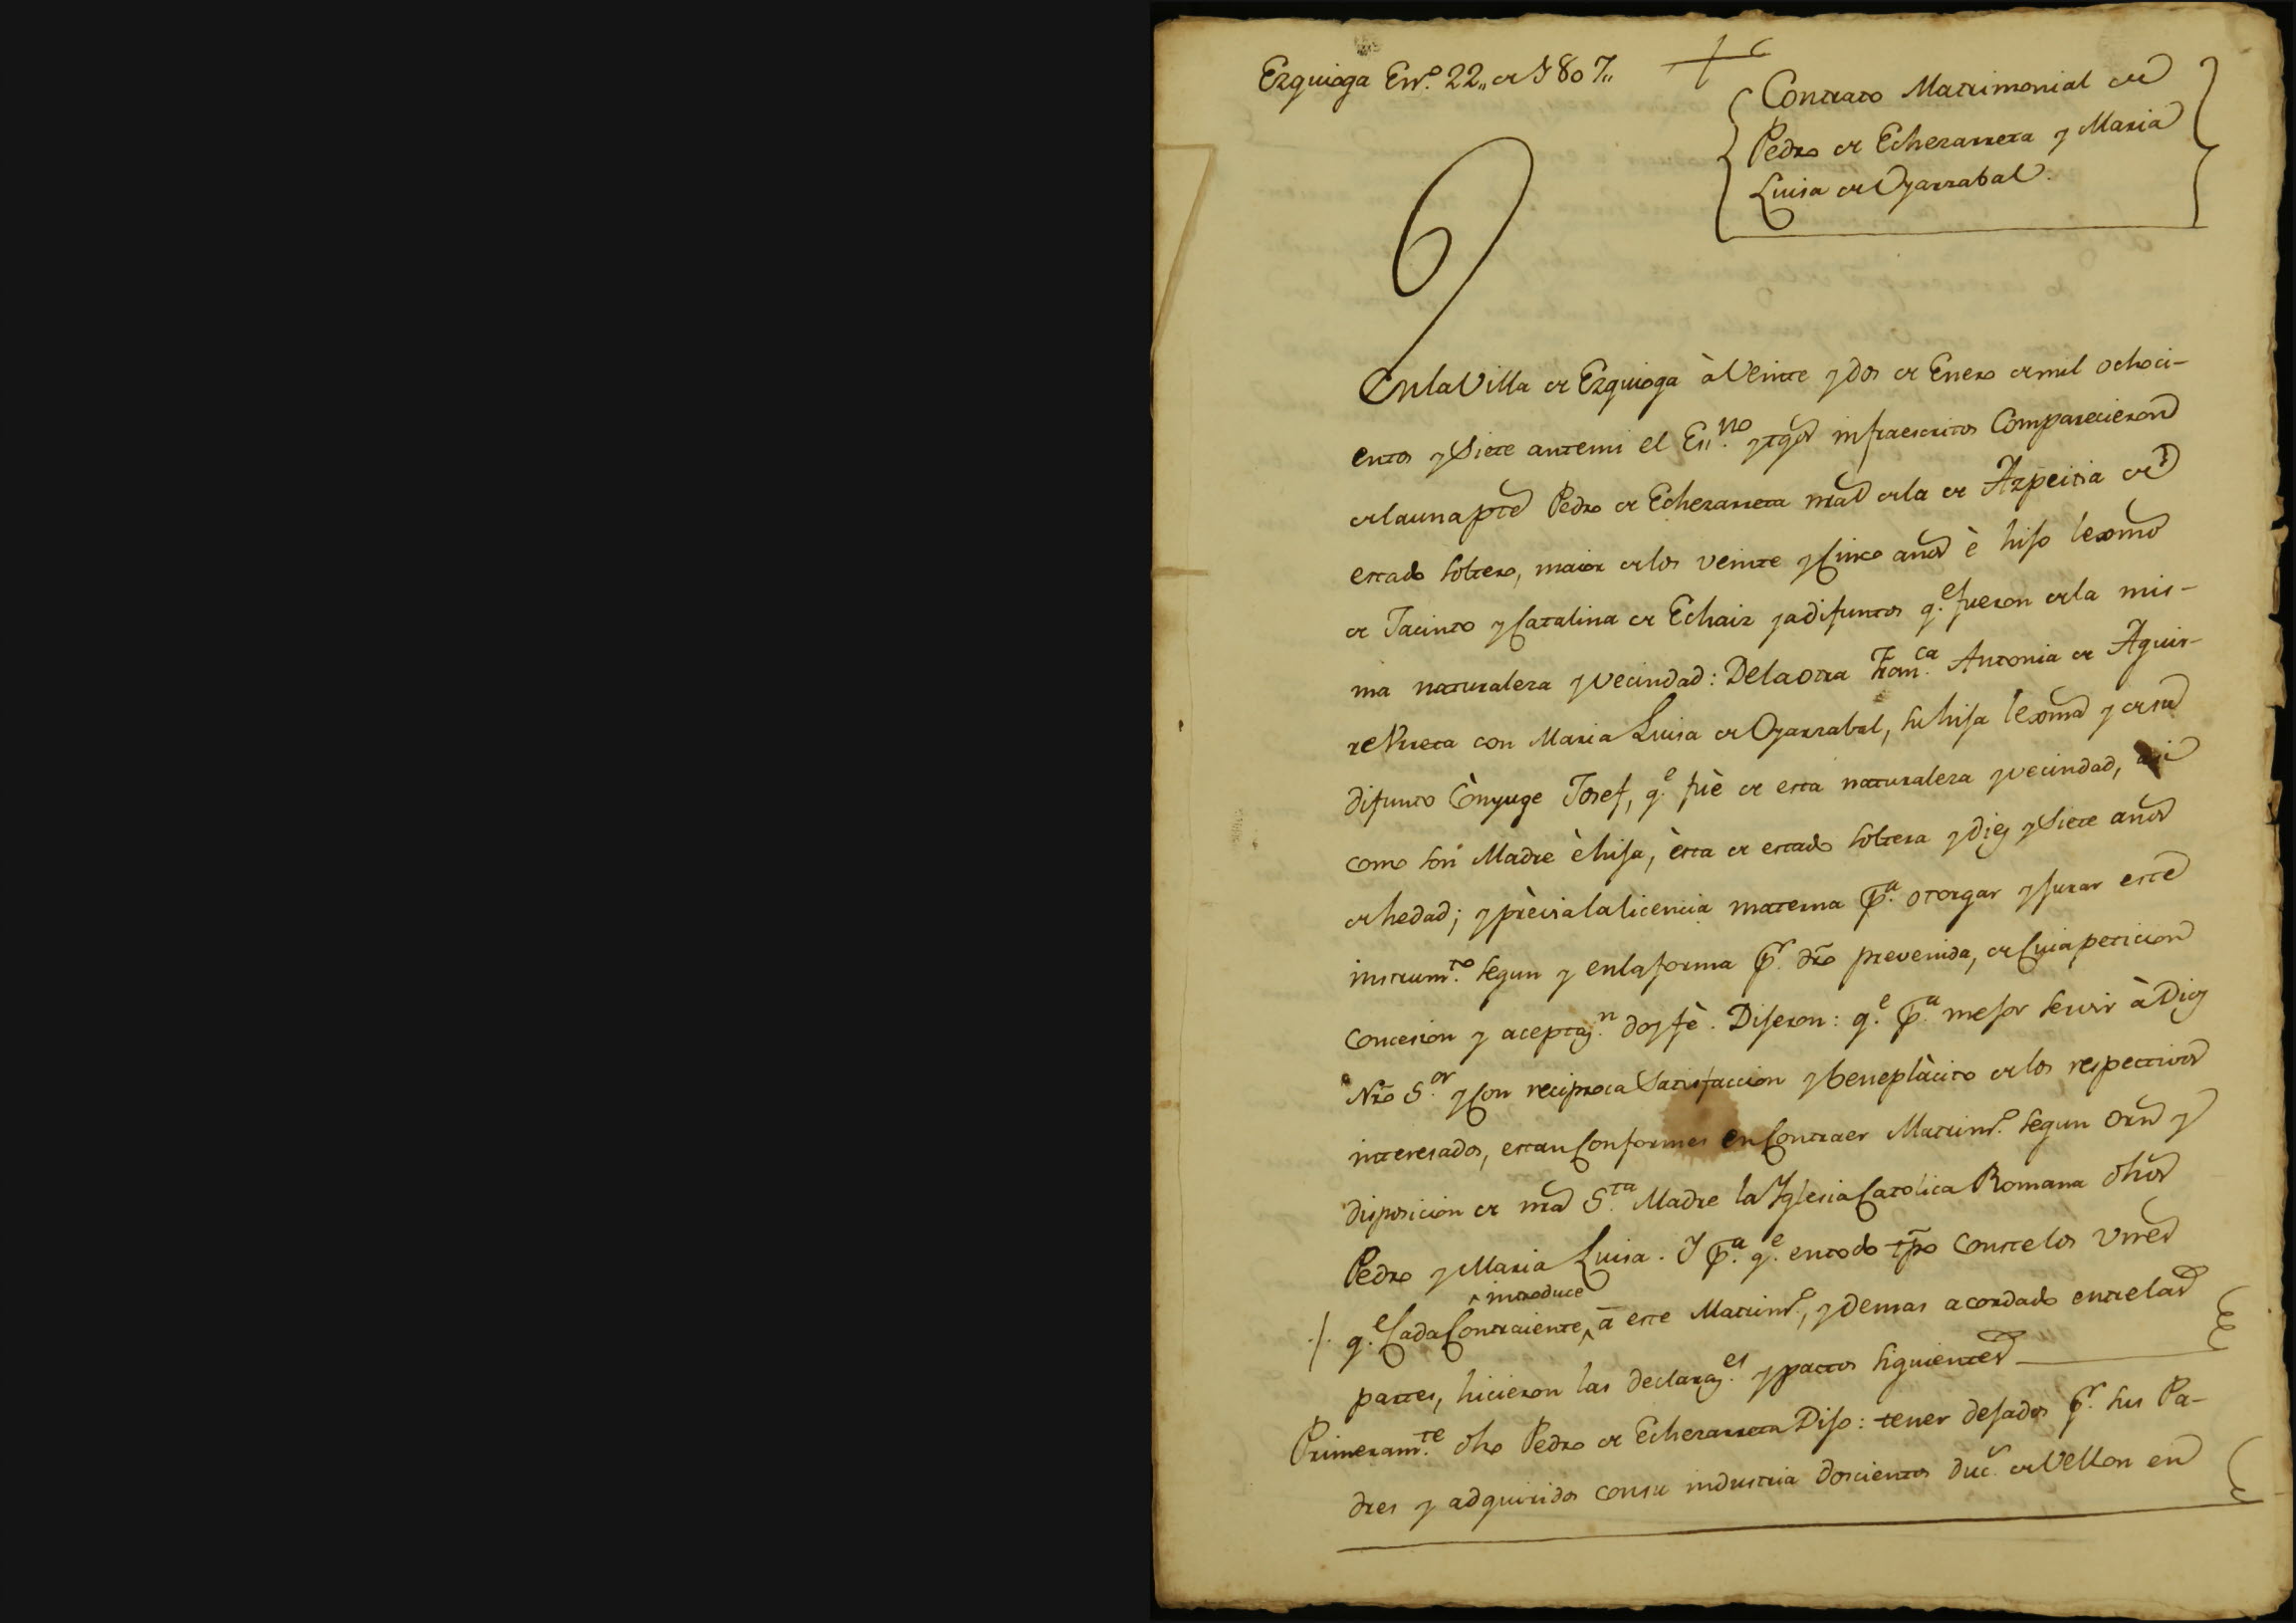 Ezquioga En.º 22,, de 1807,,
Contrato Matrimonial de
Pedro de Echezarreta y Maria
Luisa de Oyarzabal.
En la Villa de Ezquioga à Veinte y dos de Enero de mil ochoci-
entos y Siete antemi el Es.no y tgõs infraescritos Comparecieron
de la una pte Pedro de Echezarreta nral de la de Azpeitia de
estado soltero, maior de los veinte y Cinco años è hijo lexmo
de Jacinto y Catalina de Echaiz ya difuntos q.e fueron de la mis-
ma naturaleza y vecindad: De la otra Fran.ca Antonia de Aguir-
re Vrreta con Maria Luisa de Oyarzabal, su hija lexma y de su
difunto Cònyuge Josef, q.e fuè de esta naturaleza y vecindad, asi
como son Madre è hija, èsta de estado soltera y diez y Siete años
de hedad; y prèvia la licencia materna p.a otorgar y jurar este
instrum.to segun y en la forma p.r dro prevenida, de Cuia peticion
Concesion y aceptaz.n doy fè. Dijeron: q.e p.a mejor servir à Dios
Nro S.or y Con reciproca Satisfaccion y beneplàcito de los respectivos
interesados, estan Conformes en Contraer Matrim.º segun Orn y
disposicion de nra S.ta Madre la Yglesia Catolica Romana dhos
Pedro y Maria Luisa. Y p.a q.e en todo tpo Conste los Vnes
^ introduce
./. q.e Cada Contraiente ^ à este Matrim.º, y demas acordado entre las
partes, hicieron las declaraz.es y pactos siguientes
Primeram.te dho Pedro de Echezarreta Dijo: tener dejados p.r sus Pa-
dres y adquiridos con su industria doscientos duc.s de Vellon en